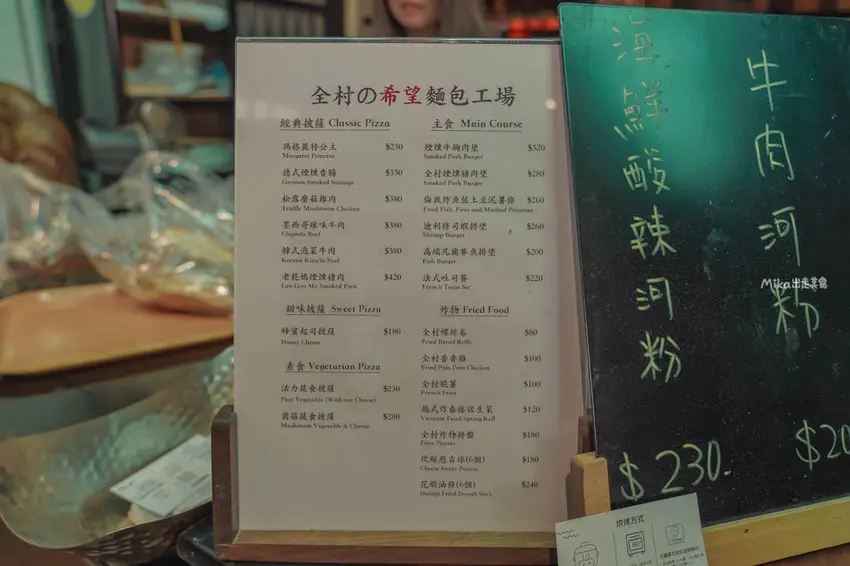 全村の希望麵包工場
經典披薩 Classic Pizza
瑪格麗特公主 $230
Margaret Princess
德式煙燻香腸 $330
German Smoked Sausage
松露蘑菇雞肉 $380
Truffle Mushroom Chicken
墨西哥辣味牛肉 $380
Chipotle Beef
韓式泡菜牛肉 $380
Korean Kimchi Beef
老乾媽煙燻豬肉 $420
Lao Gan Ma Smoked Pork
甜味披薩 Sweet Pizza
蜂蜜起司披薩 $180
Honey Cheese
素食 Vegetarian Pizza
活力蔬食披薩 $250
Pure Vegetable (With out Cheese)
菌菇蔬食披薩 $280
Mushroom Vegetable & Cheese
主食 Main Course
煙燻牛胸肉堡 $320
Smoked Pork Burger
全村煙燻豬肉堡 $280
Smoked Pork Burger
倫敦炸魚佐土豆泥薯條 $260
Fried Fish, Fires and Mashed Potatoes
迪利修司蝦排堡 $260
Shrimp Burger
高端凡爾賽魚排堡 $200
Fish Burger
法式吐司餐 $220
French Toast Set
炸物 Fried Food
全村螺絲卷 $80
Fried Bread Rolls
全村香香雞 $100
Fried Pom Pom Chicken
全村脆薯 $100
French Fries
越式炸春捲佐生菜 $120
Vietnam Fried Spring Roll
全村炸物拼盤 $180
Fries Platter
坎妞愁吉球(6個) $180
Cheese Sweet Potato
花蝦油條(6個) $240
Shrimp Fried Dough Stick
海鮮酸辣河粉
$230.
牛肉河粉
$20
Mika出走美食
烘烤方式